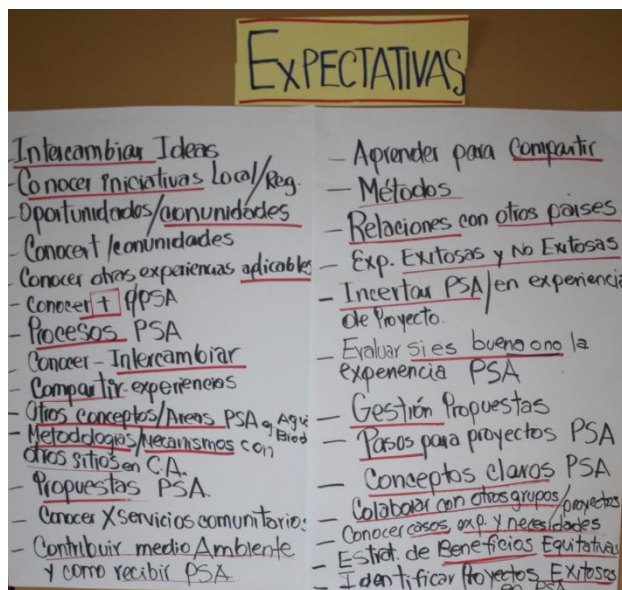 EXPECTATIVAS
- Intercambiar Ideas
- Conocer iniciativas Local/Reg.
- Oportunidades/comunidades
- Conocer + /comunidades
- Conocer otras experiencias aplicables
- Conocer + PSA
- Procesos PSA
- Conocer - Intercambiar
- Compartir experiencias
- Otros conceptos/Areas PSA
- Metodologias/Mecanismos con
otros sitios en C.A.
- Propuestas PSA.
- Conocer X servicios comunitarios
- Contribuir medio Ambiente
y como recibir PSA
- Aprender para Compartir
- Métodos
- Relaciones con otros paises
- Exp. Exitosas y No Exitosas
- Incertar PSA/en experiencia
de Proyecto.
- Evaluar si es bueno o no la
experiencia PSA
- Gestión Propuestas
- Pasos para proyectos PSA
- Conceptos claros PSA
- Colaborar con otros grupos/proyectos
- Conocer casos, exp. y necesidades
- Estrat. de Beneficios Equitativas
- Identificar Proyectos Exitosos
en PSA